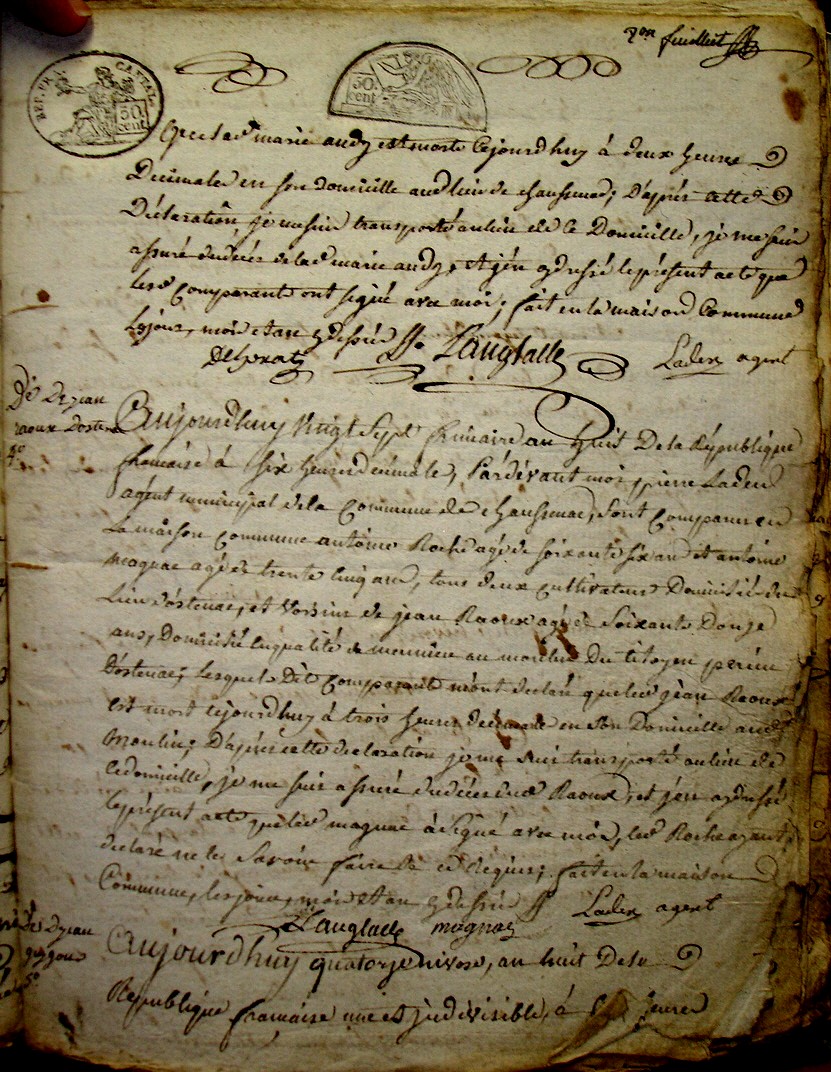 2me feuillet
REP. FRA. CANTAL.
50. cent
50. cent
Que la de marie audy est morte cejourdhuy à deux heures
Decimales en son domicille audt lieu de chaussenac; D'après cette
Déclaration je me suis transporté au lieu de ce Domicille, je me suis
assuré dudécés de lade marie audy, et j'en ay dressé le présent acte que
les comparants ont signé avec moi; fait en la maison Commune
les jour, mois et an que dessus
Delpratz Langlade Laden agent
Dé De jean
raoux dostenac
4o
Aujourdhuy vingt Sept frimaire an huit De la République
francaise à six heures decimale, Pardévant moi pierre Laden
agent municipal de la Commune de chaussenac, sont comparus en
La maison commune antoine Roche agé de soixante six ans et antoine
magnac agé de trente cinq ans, tous deux cultivateurs Domicilié du
Lieu d'ostenac, et voisins de jean Raoux agé de Soixante Douze
ans, Domicilié en qualité de meunier au moulin Du citoyen
d'ostenac; lesquels Dit comparants m'ont declaré que led jean Raoux
Est mort cejourdhuy à trois heures decimale en son Domicille audt
Moulin; D'après cette declaration je me suis transporté au lieu de
ce domicille, je me suis assuré dudécés dud Raoux, et j'en ay dressé
le présent acte que led magnac à signé avec moi, led Roche ayant
declaré ne les savoir faire de ce Requis; fait en la maison
Commune, les jour, mois et an que dessus Laden agent
Langlade magnac
Dés De jean
5o
Aujourdhuy quatorze nivose, an huit De la
République francaise une et jndivisible, à heures